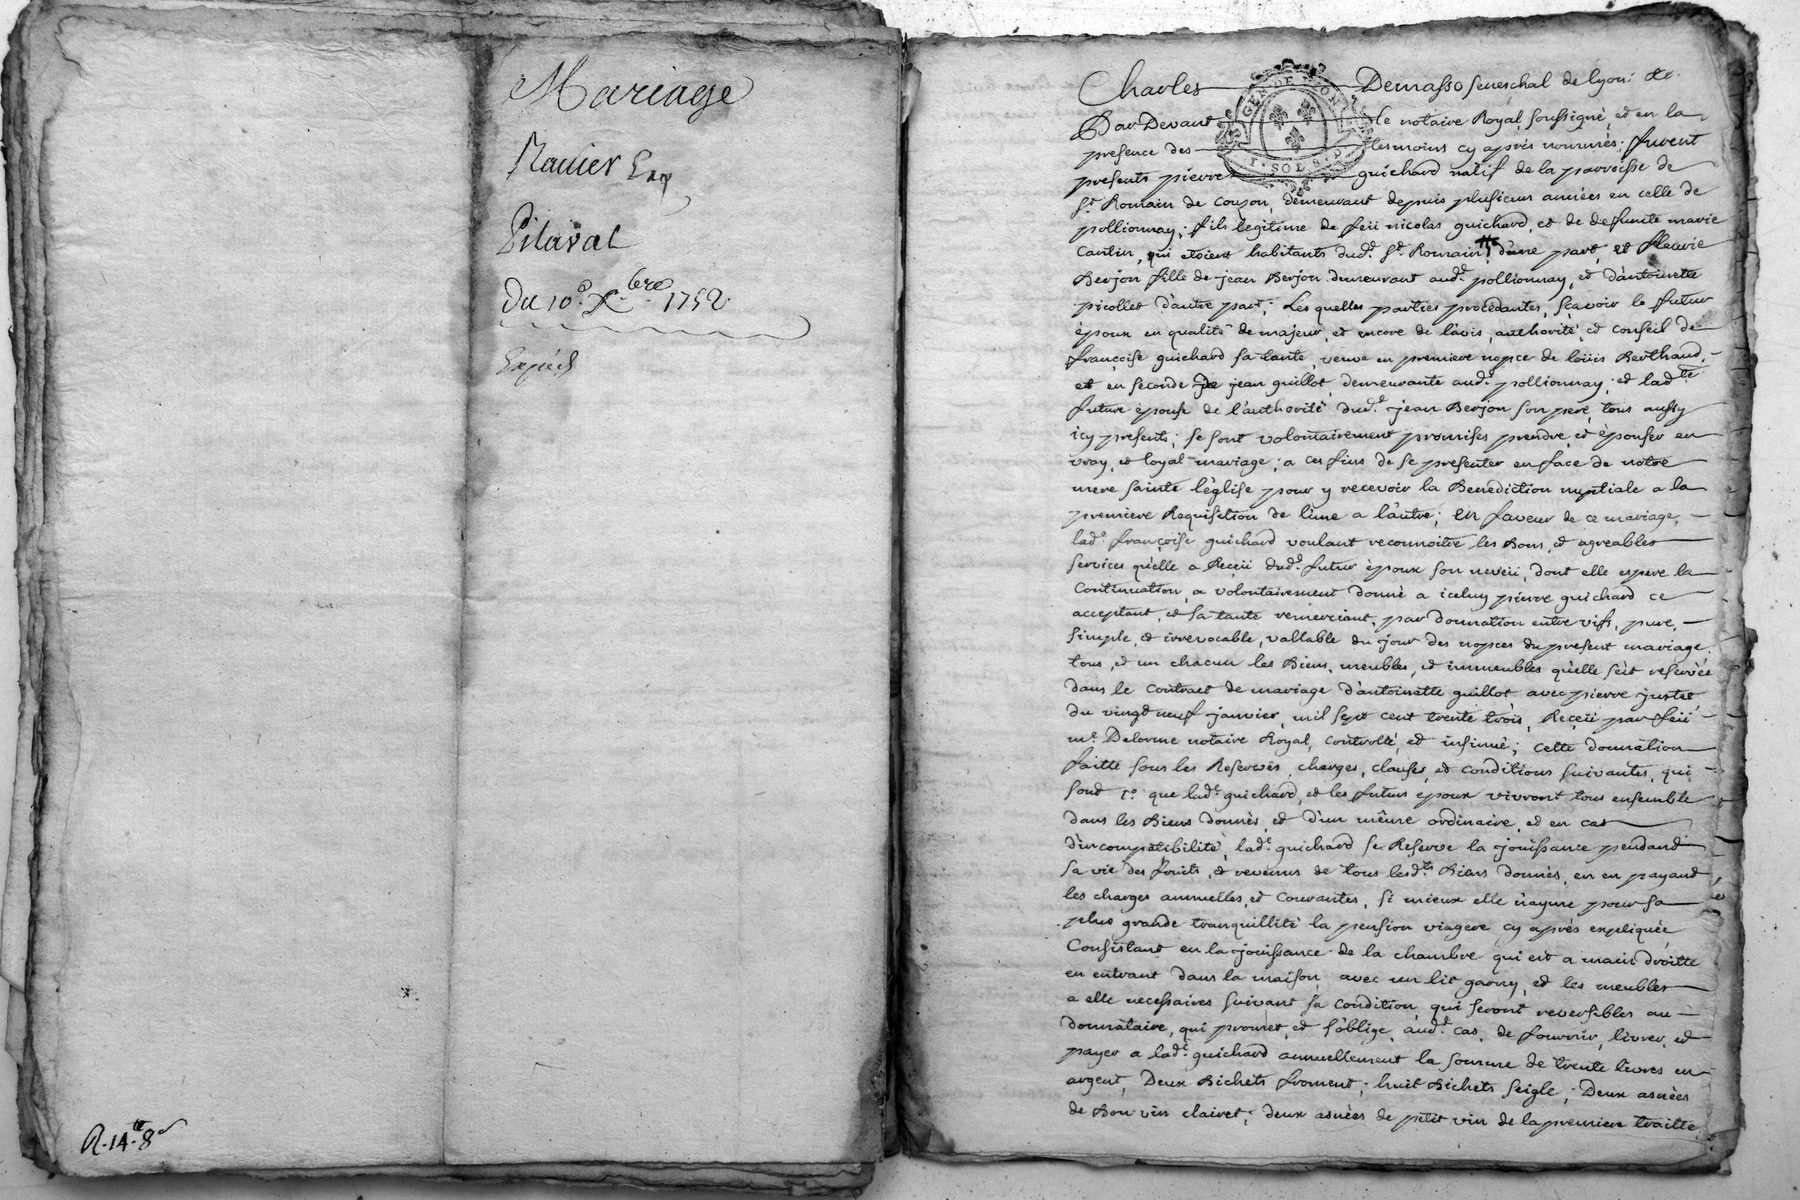 Mariage
Ravier Exp
Pilaval
Du 10.e X.bre 1752
Expédié
R. 14.tt 8.s
GEN. DE LYON
1. SOL 8. D
Charles Demasso seneschal de lyon &c.
Par Devant le notaire Royal soussigné, et en la
presence des tesmoins cy après nommés; furent
presents pierre guichard natif de la parroisse de
S.t Romain de Couzon, demeurant depuis plusieurs années en celle de
pollionnay, fils legitime de feü nicolas guichard, et de defunte marie
Cantin, qui etoient habitants dud.t S.t Romain, d'une part, et fleurie
Berjon fille de jean Berjon demeurant aud.t pollionnay, et d'antoinette
picollet d'autre part; Les quelles parties procedantes, sçavoir le futur
époux en qualité de majeur, et encore de l'avis, authorité, et conseil de
françoise guichard sa tante, veuve en premiere nopce de loüis Berthaud,
et en seconde de jean guillot, demeurante aud.t pollionnay; et lad.te
future épouse de l'authorité dud.t jean Berjon son pere, tous aussy
icy presents; se sont volontairement promises prendre, et épouser en
vray, et loyal mariage; a ces fins de se presenter en face de notre
mere sainte l'église pour y recevoir la Benediction nuptiale a la
premiere Requisition de l'une a l'autre; en faveur de ce mariage,
lad.e françoise guichard voulant reconnoitre les Bons, et agreables
services qu'elle a Reçeü dud.t futur époux son neveü, dont elle espere la
Continuation, a volontairement donné a iceluy pierre guichard ce
acceptant, et sa tante remerciant, par donnation entre vifs, pure,
simple, et irrevocable, vallable du jour des nopces du present mariage
tous, et un chacun les Biens, meubles, et immeubles qu'elle s'éit reservés
dans le Contract de mariage d'antoinette guillot avec pierre justet
du vingt neuf janvier, mil sept cent trente trois, Reçeü par feü
m.e Delorme notaire Royal, controllé, et insinué; cette donnation
faitte sous les Reserves, charges, clauses, et conditions suivantes, qui
sont 1.o que lad.e guichard, et les futurs époux vivront tous ensemble
dans les Biens donnés, et d'un même ordinaire, et en cas
d'incompatibilité, lad.e guichard se Reserve la jouissance pendant
sa vie des fruits, et revenus de tous lesd.ts Biens donnés, en en payant
les charges annuelles, et courantes, si mieux elle n'ayme pour sa
plus grande tranquillité la pension viagere cy après expliquée
Consistant en la jouissance de la chambre qui est a main droitte
en entrant dans la maison, avec un lit garny, et les meubles
a elle necessaires suivant sa condition, qui seront reversibles au
donnataire, qui promet, et s'oblige, aud.t cas, de fournir, livrer, et
payer a lad.e guichard annuellement la somme de trente livres en
argent, Deux Bichets froment, huit Bichets seigle; Deux asnées
de Bon vin clairet; deux asnées de petit vin de la premiere traitte,